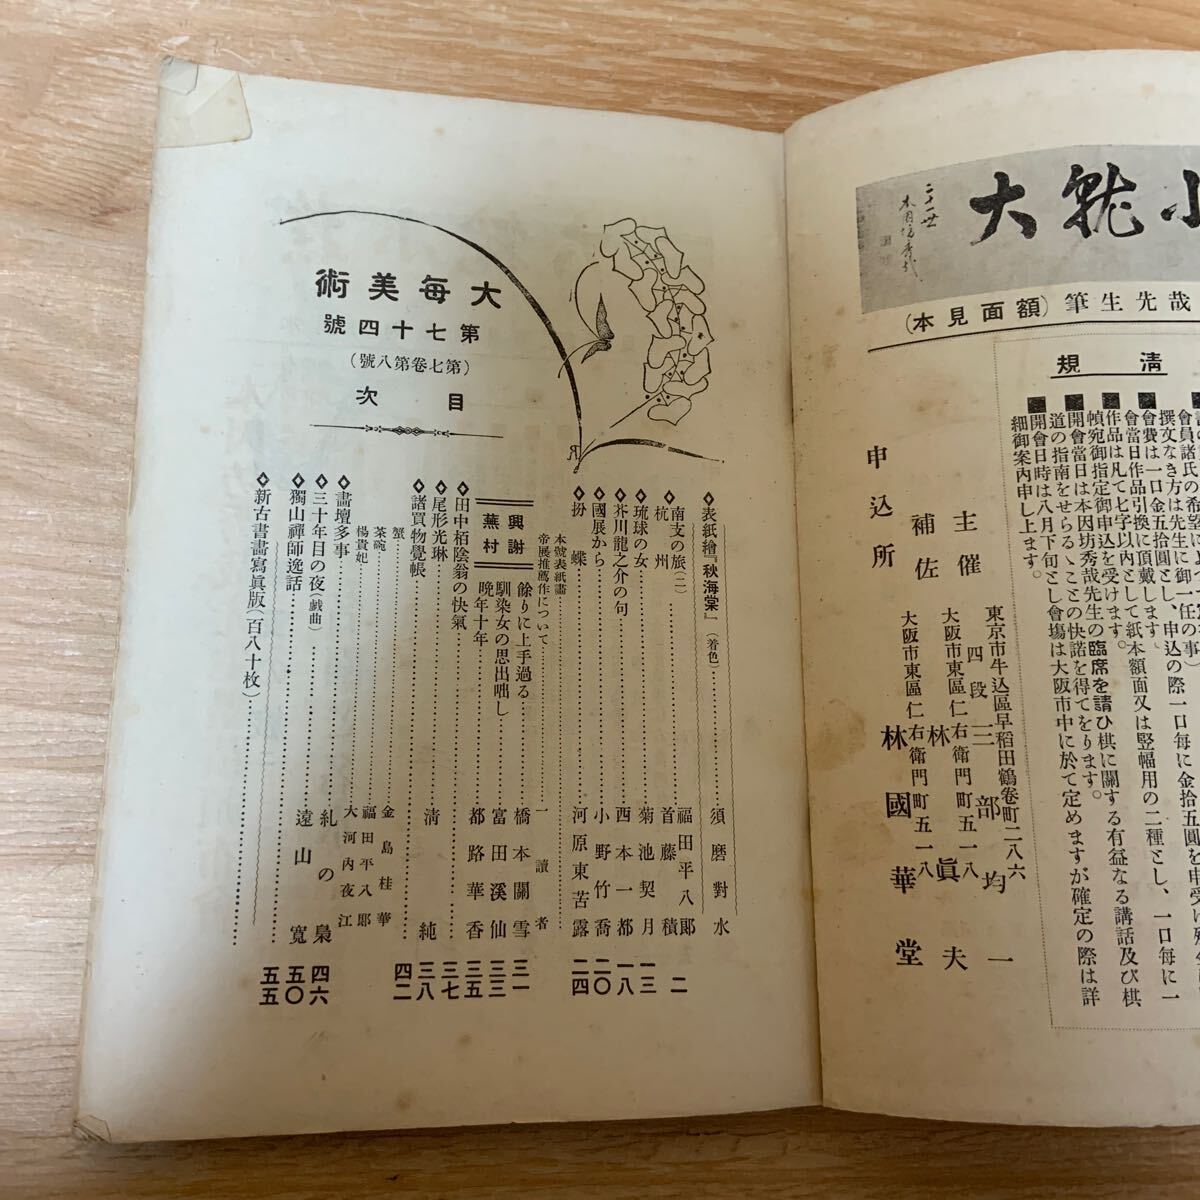 大每美術
第七十四號
(第七卷第八號)
目次
◆表紙繪『秋海棠』(着色)……須磨對水
◆南支の旅(二)……福田平八郎 二
◆杭州……首藤積
◆琉球の女……菊池契月 一三
◆芥川龍之介の句……西本一都 一八
◆國展から……小野竹喬 二〇
◆扮蝶……河原東苦露 二四
本號表紙畫……
帝展推薦作について……一讀者
與謝蕪村
餘りに上手過る……橋本關雪 三一
馴染女の思出咄し……富田溪仙 三三
晩年十年……都路華香 三五
◆田中栢陰翁の快氣……三七
◆尾形光琳……清純 三八
◆諸買物覺帳……四二
蟹……金島桂華
茶碗……福田平八郎
楊貴妃……大河内夜江
◆畵壇多事……
◆三十年目の夜(戯曲)……糺の梟 四六
◆獨山禪師逸話……遠山寛 五〇
◆新古書畵寫眞版(百八十枚)……五五
大就小
二十一世
本因坊秀哉
哉先生筆(額面見本)
清規
會員諸氏の希望によつて
撰文なき方は先生に御一任の事)
會費は一口金五拾圓とし、申込の際一口每に金拾五圓を申受け殘金は
會當日作品引換に頂戴します
作品は凡て七字以内として紙本額面又は竪幅用の二種とし、一口每に一
幀宛御指定御申込を受けます。
開會當日は本因坊秀哉先生の臨席を請ひ棋に關する有益なる講話及び棋
道の指南をせらるゝことの快諾を得てをります。
開會日時は八月下旬とし會塲は大阪市中に於て定めますが確定の際は詳
細御案内申し上ます。
東京市牛込區早稻田鶴卷町二八六
主催 四段 三部均一
大阪市東區仁右衛門町五一八
補佐 林眞夫
大阪市東區仁右衛門町五一八
申込所 林國華堂